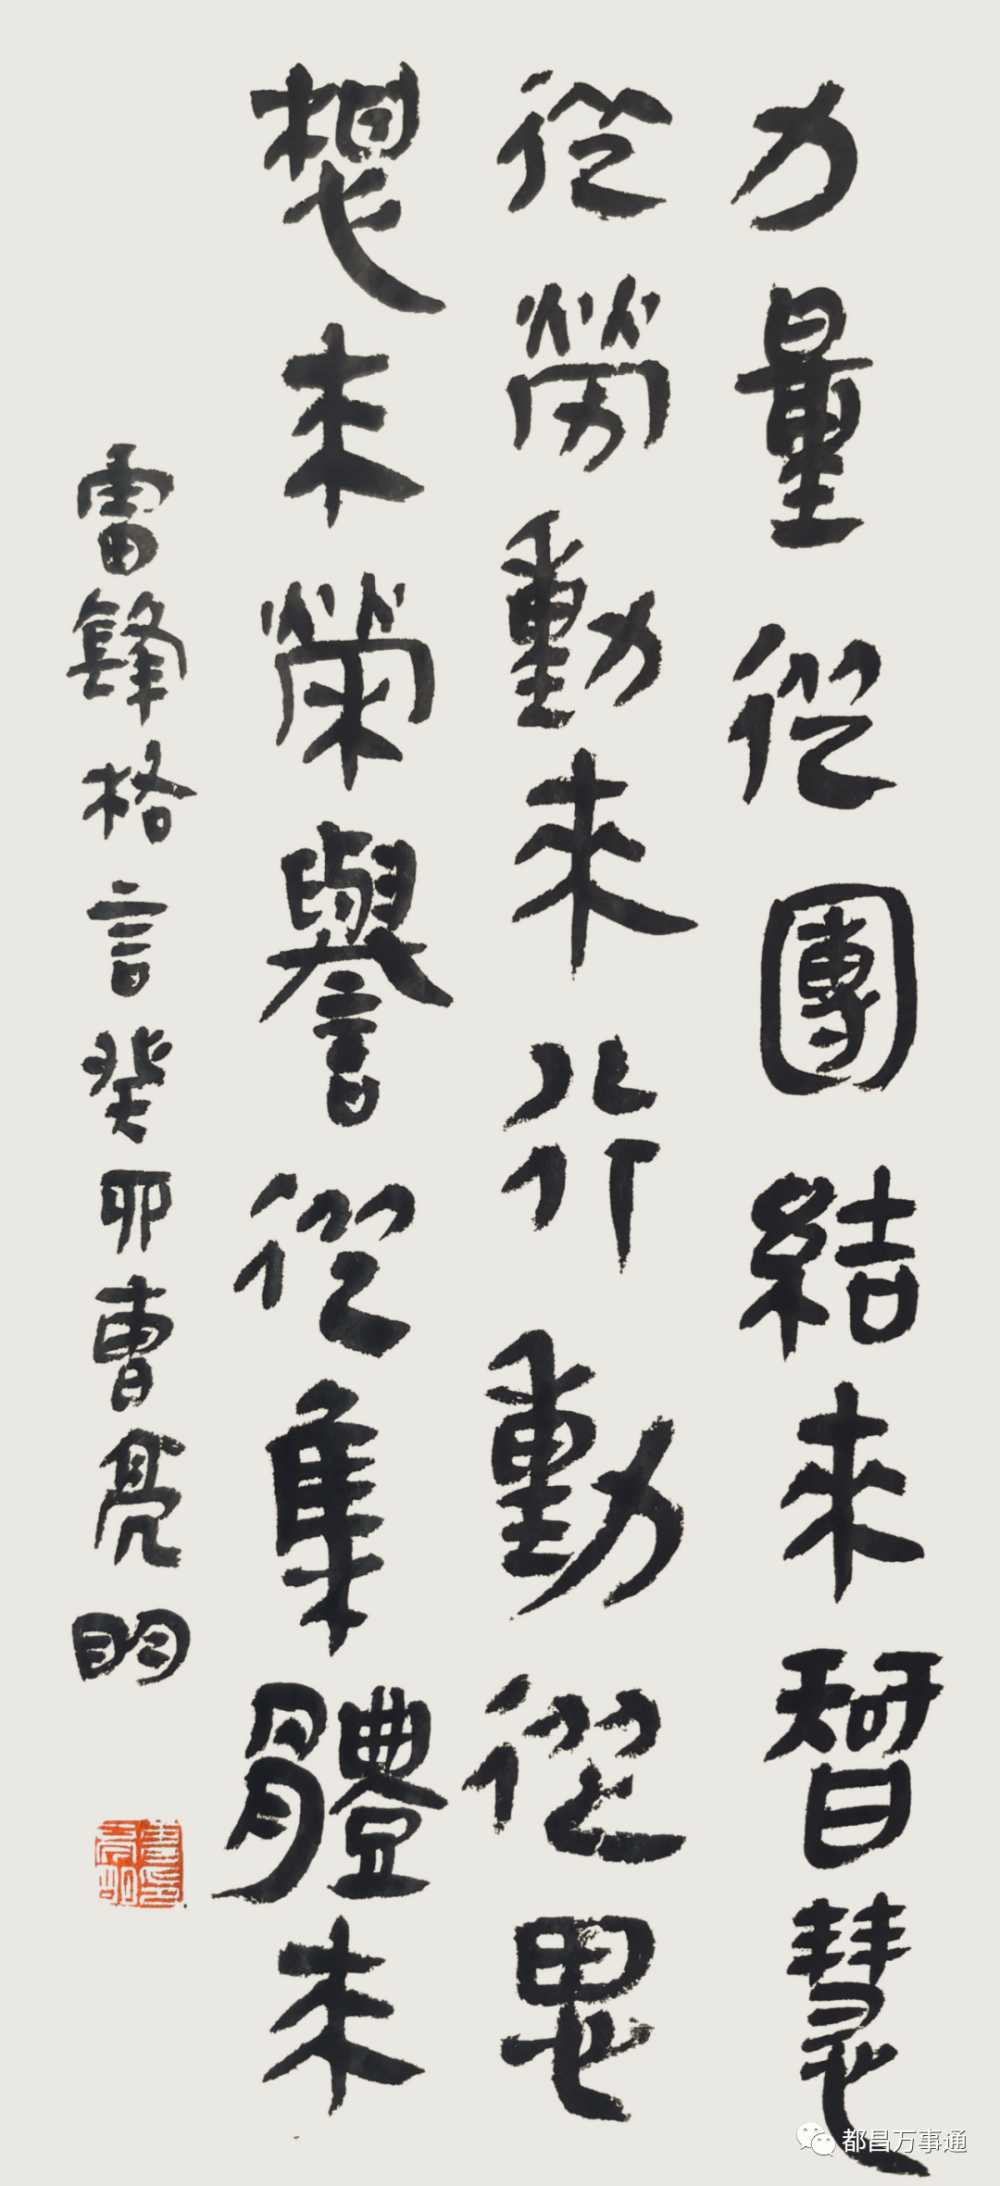 力量從團結來智慧
從勞動來行動從思
想来榮譽從集體来
雷鋒格言癸卯曹亮明
都昌万事通